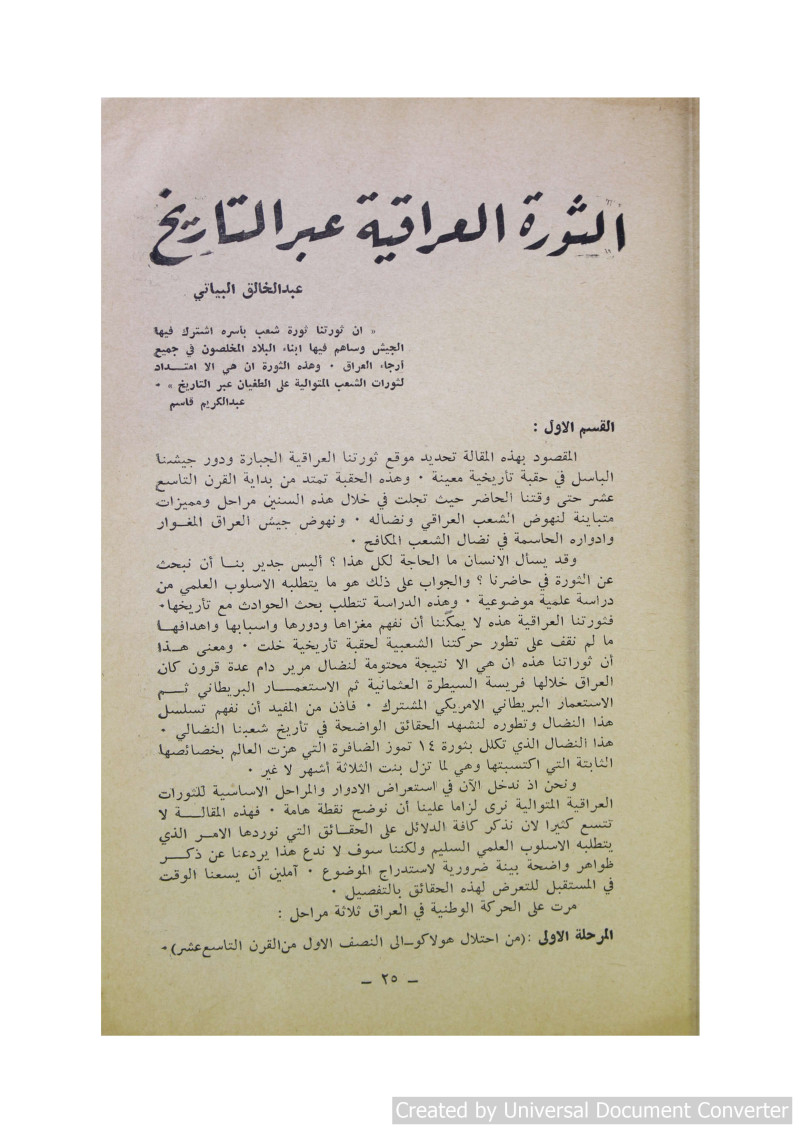 الثورة العراقية عبر التاريخ
عبدالخالق البياتي
« ان ثورتنا ثورة شعب بأسره اشترك فيها
الجيش وساهم فيها ابناء البلاد المخلصون في جميع
أرجاء العراق ٠ وهذه الثورة ان هي الا امتـــداد
لثورات الشعب المتوالية على الطغيان عبر التاريخ » ٠
عبدالكريم قاسم
القسم الاول :
المقصود بهذه المقالة تحديد موقع ثورتنا العراقية الجبارة ودور جيشنا
الباسل في حقبة تأريخية معينة ٠ وهذه الحقبة تمتد من بداية القرن التاسع
عشر حتى وقتنا الحاضر حيث تجلت في خلال هذه السنين مراحل ومميزات
متباينة لنهوض الشعب العراقي ونضاله ٠ ونهوض جيش العراق المغـوار
وادواره الحاسمة في نضال الشعب المكافح ٠
وقد يسأل الانسان ما الحاجة لكل هذا ؟ أليس جدير بنـا أن نبحث
عن الثورة في حاضرنا ؟ والجواب على ذلك هو ما يتطلبه الاسلوب العلمي من
دراسة علمية موضوعية ٠ وهذه الدراسة تتطلب بحث الحوادث مع تأريخها٠
فثورتنا العراقية هذه لا يمكننا أن نفهم مغزاها ودورها واسبابها واهدافهـا
ما لم نقف على تطور حركتنا الشعبية لحقبة تأريخية خلت ٠ ومعنى هـذا
أن ثوراتنا هذه ان هي الا نتيجة محتومة لنضال مرير دام عدة قرون كان
العراق خلالها فريسة السيطرة العثمانية ثم الاستعمـــار البريطاني ثـــم
الاستعمار البريطاني الامريكي المشترك ٠ فاذن من المفيد أن نفهم تسلسل
هذا النضال وتطوره لنشهد الحقائق الواضحة في تأريخ شعبنا النضالي ٠
هذا النضال الذي تكلل بثورة ١٤ تموز الضافرة التي هزت العالم بخصائصها
الثابتة التي اكتسبتها وهي لما تزل بنت الثلاثة أشهر لا غير ٠
ونحن اذ ندخل الآن في استعراض الادوار والمراحل الاساسية للثورات
العراقية المتوالية نرى لزاما علينا أن نوضح نقطة هامة ٠ فهذه المقالـــة لا
تتسع كثيرا لان نذكر كافة الدلائل على الحقـائق التي نوردها الامـر الذي
يتطلبه الاسلوب العلمي السليم ولكننا سوف لا ندع هذا يردعنا عن ذكـــر
ظواهر واضحة بينة ضرورية لاستدراج الموضوع ٠ آملين أن يسعنا الوقت
في المستقبل للتعرض لهذه الحقائق بالتفصيل ٠
مرت على الحركة الوطنية في العراق ثلاثة مراحل :
المرحلة الاولى : (من احتلال هولاكو-الى النصف الاول من القرن التاسع عشر)٠
— ٢٥ —
Created by Universal Document Converter